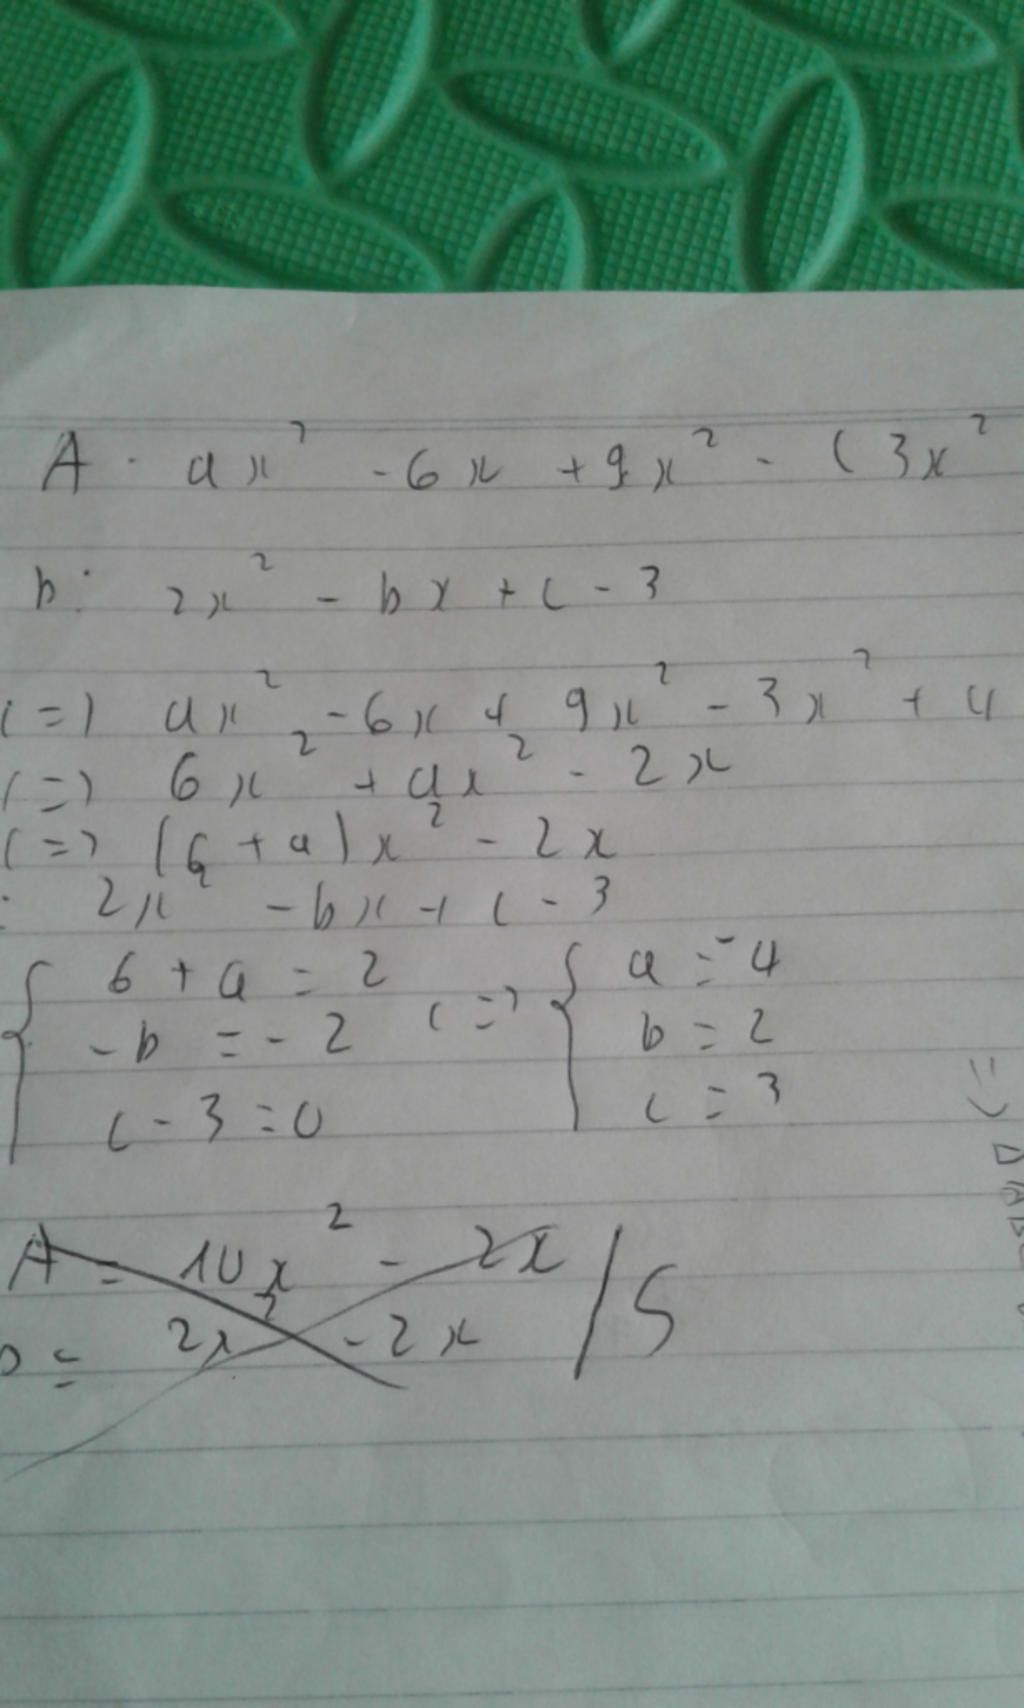 A: ax² - 6x + 9x² - (3x²
b: 2x² - bx + c - 3
(=) ax² - 6x + 9x² - 3x² + 4
(=) 6x² + ax² - 2x
(=) (6 + a)x² - 2x
: 2x² - bx + c - 3
6 + a = 2 (=) a = -4
-b = -2 b = 2
c - 3 = 0 c = 3
A = 10x² - 2x / 5
= 2x² - 2x